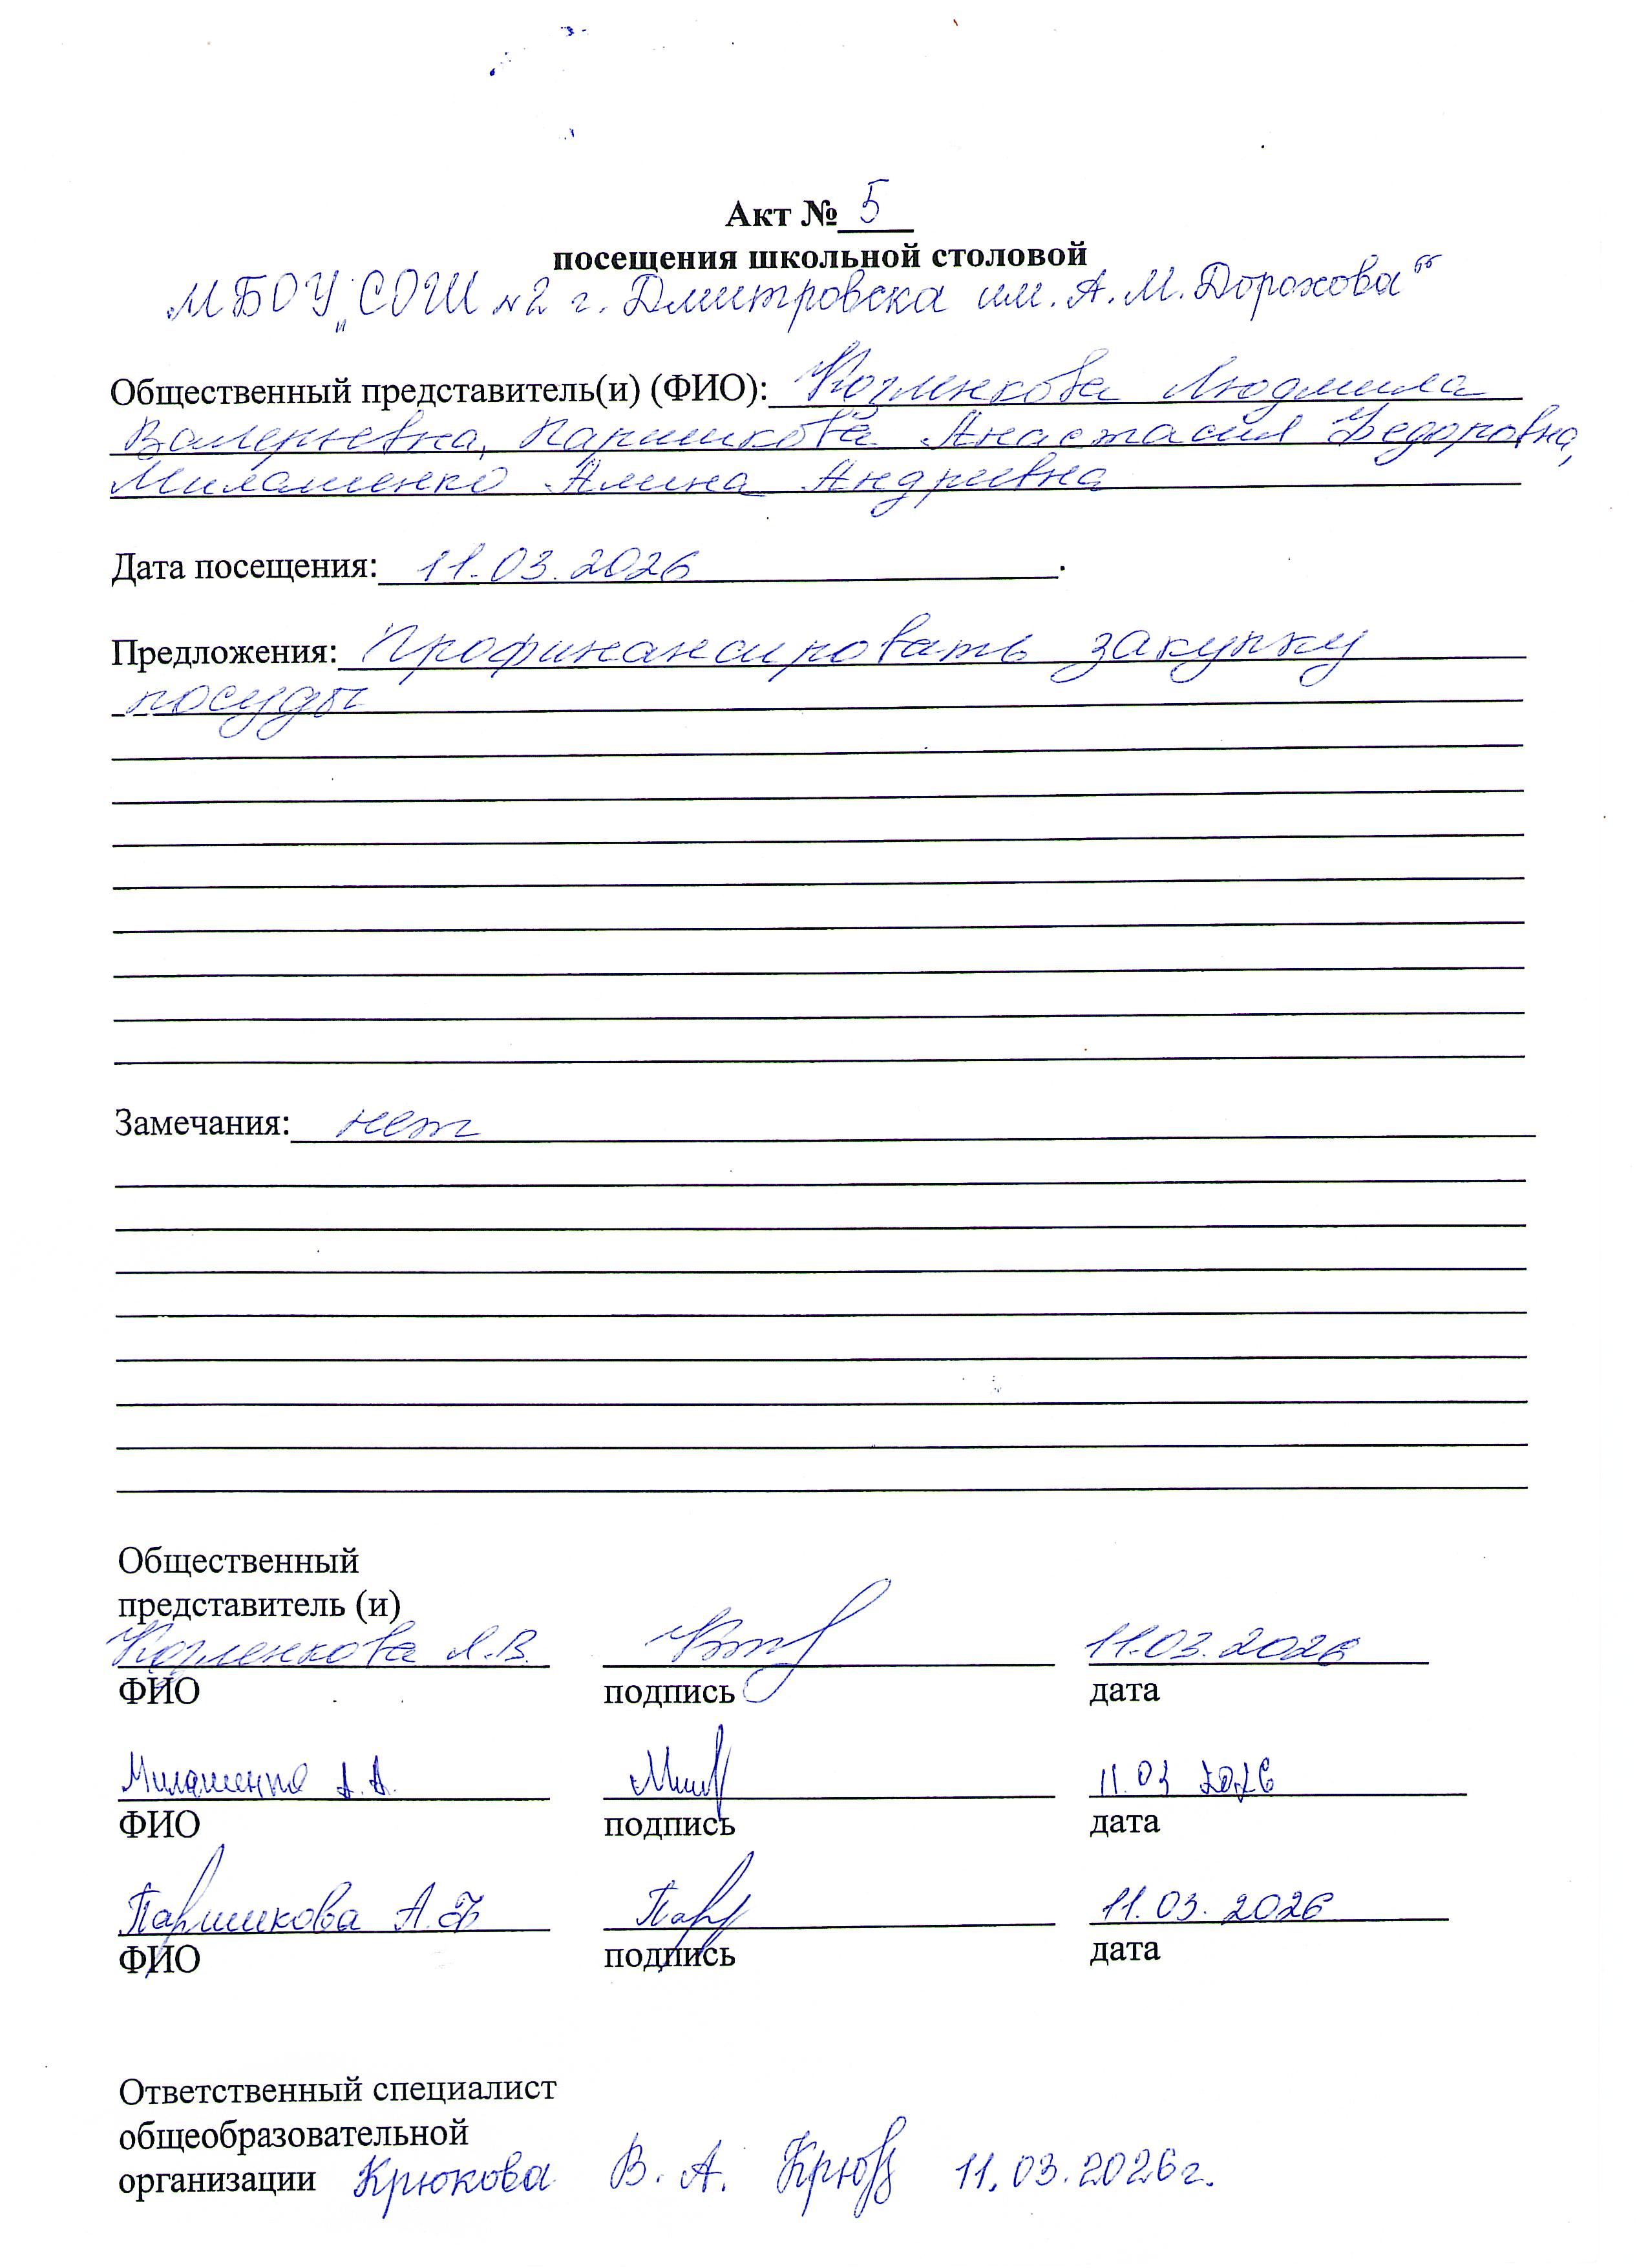 Акт № 5
посещения школьной столовой
МБОУ „СОШ №2 г. Дмитровска им. А.М. Дорохова“
Общественный представитель(и) (ФИО): Козленкова Людмила
Валерьевна, Паршикова Анастасия Федоровна,
Милашенко Алина Андреевна
Дата посещения: 11.03.2026.
Предложения: Профинансировать закупку
посуды
Замечания: нет
Общественный
представитель (и)
Козленкова Л.В. 11.03.2026
ФИО подпись дата
Милашенко А.А. 11.03 2026
ФИО подпись дата
Паршикова А.Ф 11.03.2026
ФИО подпись дата
Ответственный специалист
общеобразовательной
организации Крюкова В.А. 11.03.2026г.